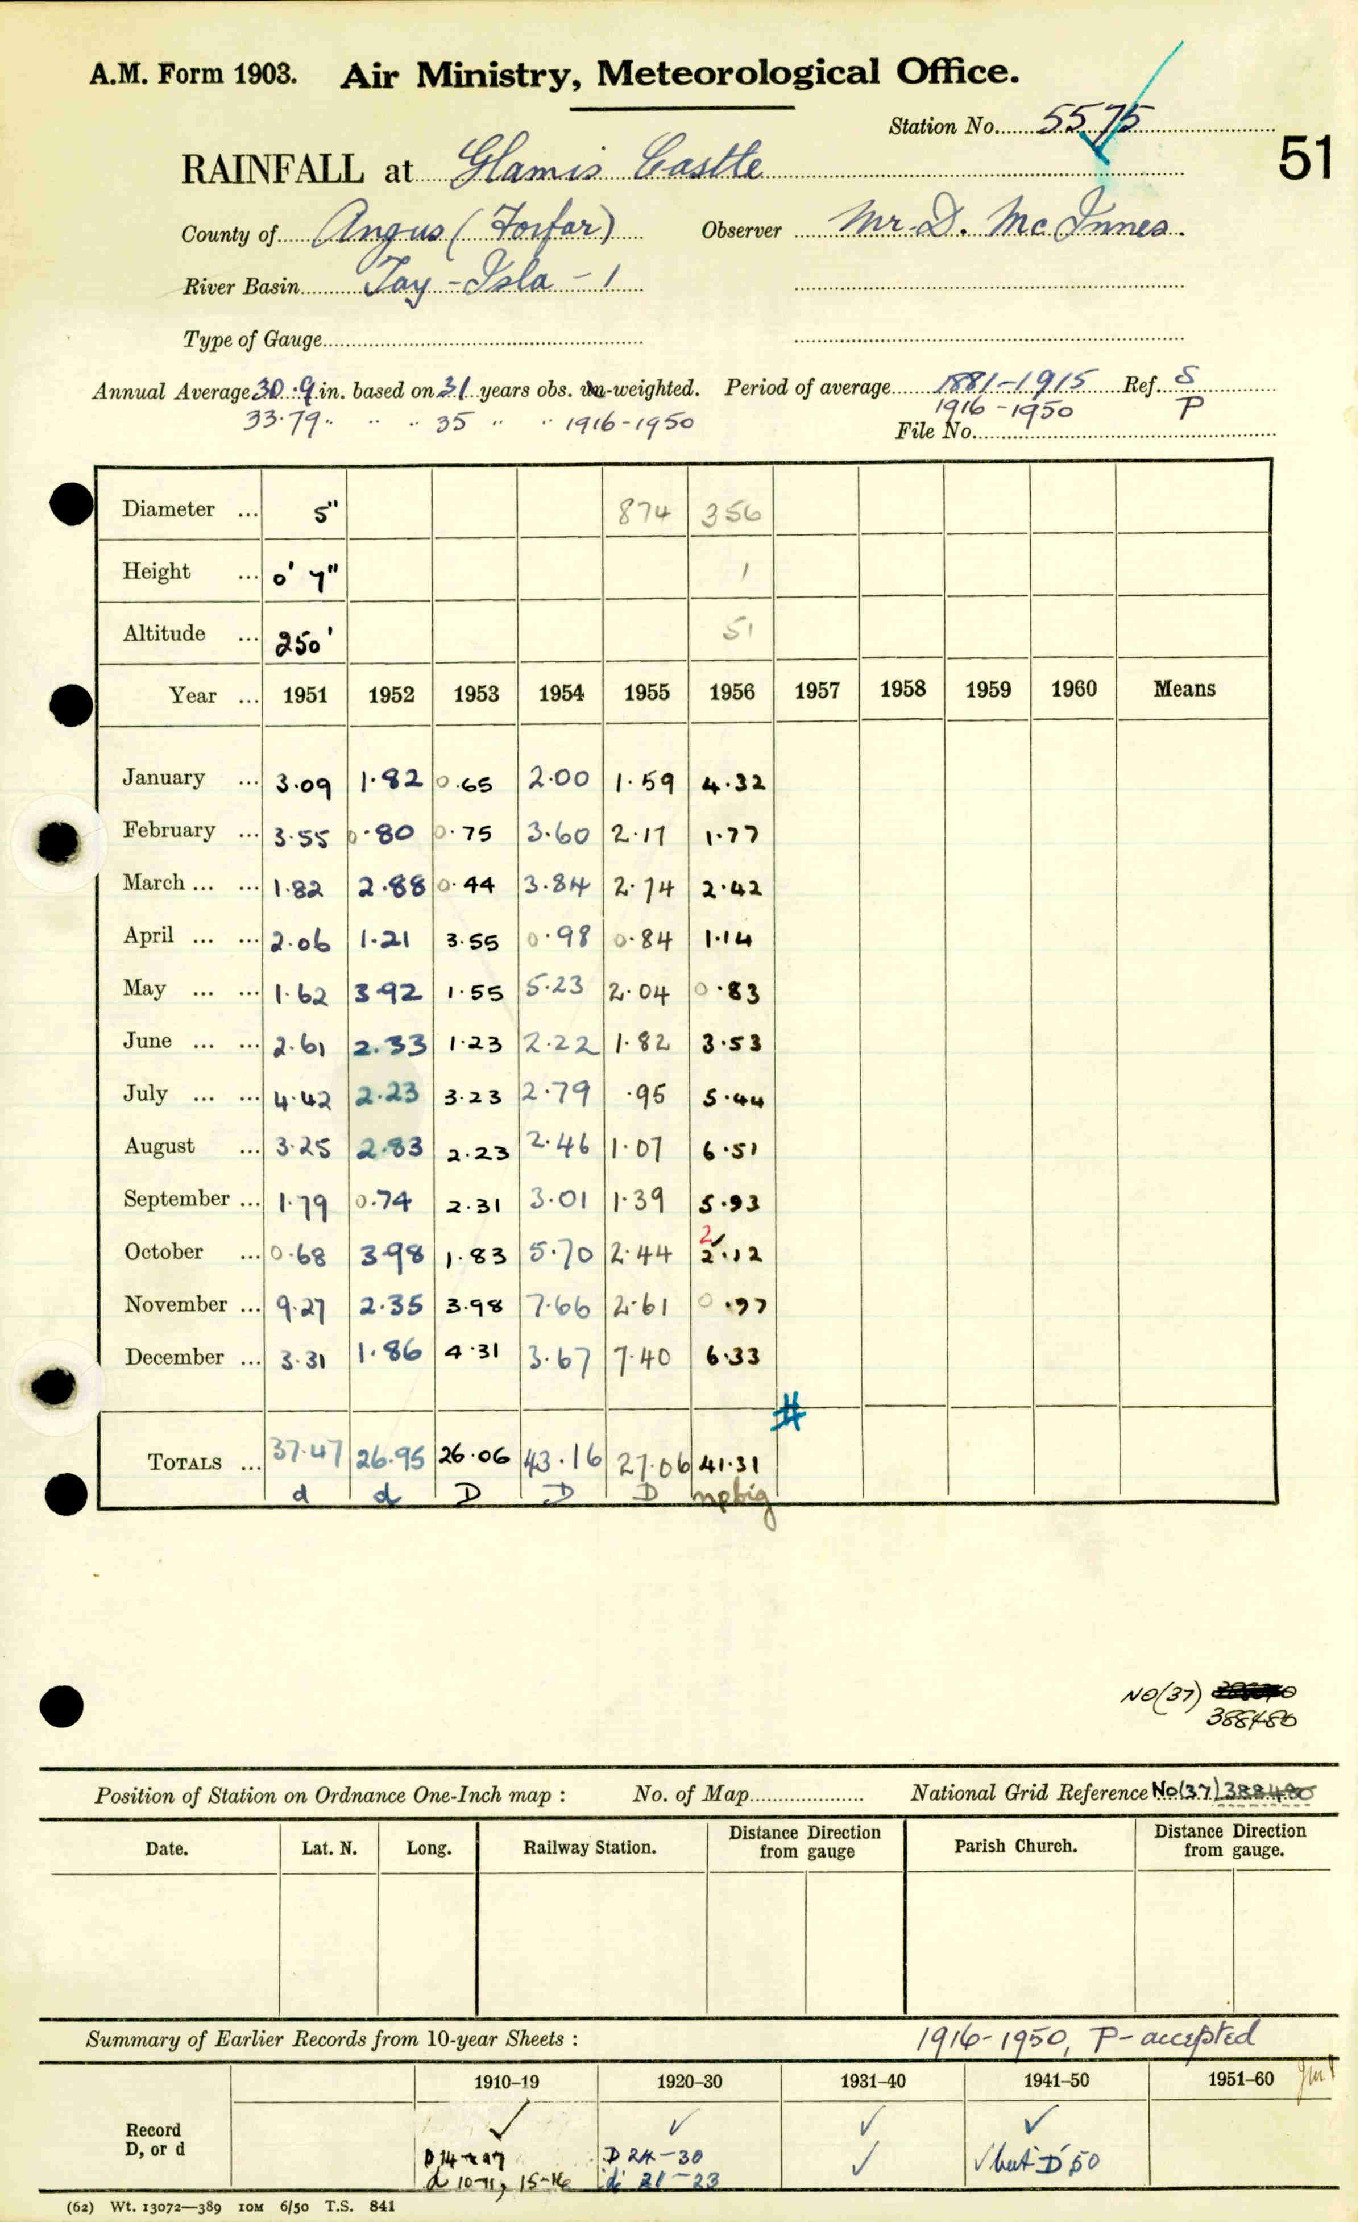 A.M. Form 1903. Air Ministry, Meteorological Office.
Station No. 5575
51
RAINFALL at Glamis Castle
County of Angus (Forfar) Observer Mr. D. McInnes.
River Basin Tay - Isla - 1
Type of Gauge
Annual Average 30.9 in. based on 31 years obs. un-weighted. Period of average 1881-1915 Ref. S
33.79 " " " 35 " " 1916-1950 1916-1950 P
File No.
Diameter ... 5" 874 356
Height ... 0' 7" 1
Altitude ... 250' 51
Year ... 1951 1952 1953 1954 1955 1956 1957 1958 1959 1960 Means
January ... 3.09 1.82 0.65 2.00 1.59 4.32
February ... 3.55 0.80 0.75 3.60 2.17 1.77
March ... ... 1.82 2.88 0.44 3.84 2.74 2.42
April ... ... 2.06 1.21 3.55 0.98 0.84 1.14
May ... ... 1.62 3.92 1.55 5.23 2.04 0.83
June ... ... 2.61 2.33 1.23 2.22 1.82 3.53
July ... ... 4.42 2.23 3.23 2.79 .95 5.44
August ... 3.25 2.83 2.23 2.46 1.07 6.51
September ... 1.79 0.74 2.31 3.01 1.39 5.93
2
October ... 0.68 3.98 1.83 5.70 2.44 2.12
November ... 9.27 2.35 3.98 7.66 2.61 0.97
December ... 3.31 1.86 4.31 3.67 7.40 6.33
#
TOTALS ... 37.47 26.95 26.06 43.16 27.06 41.31
d d D D D npbig
NO(37)
388480
Position of Station on Ordnance One-Inch map : No. of Map National Grid Reference NO(37) 388480
Date. Lat. N. Long. Railway Station. Distance Direction from gauge Parish Church. Distance Direction from gauge.
Summary of Earlier Records from 10-year Sheets : 1916-1950, P-accepted
1910–19 1920–30 1931–40 1941–50 1951–60
Record ✓ ✓ ✓ ✓
D, or d D 24-30 ✓ ✓ but D 50
d 10-11, 15-16 d 21-23
(62) Wt. 13072—389 10M 6/50 T.S. 841